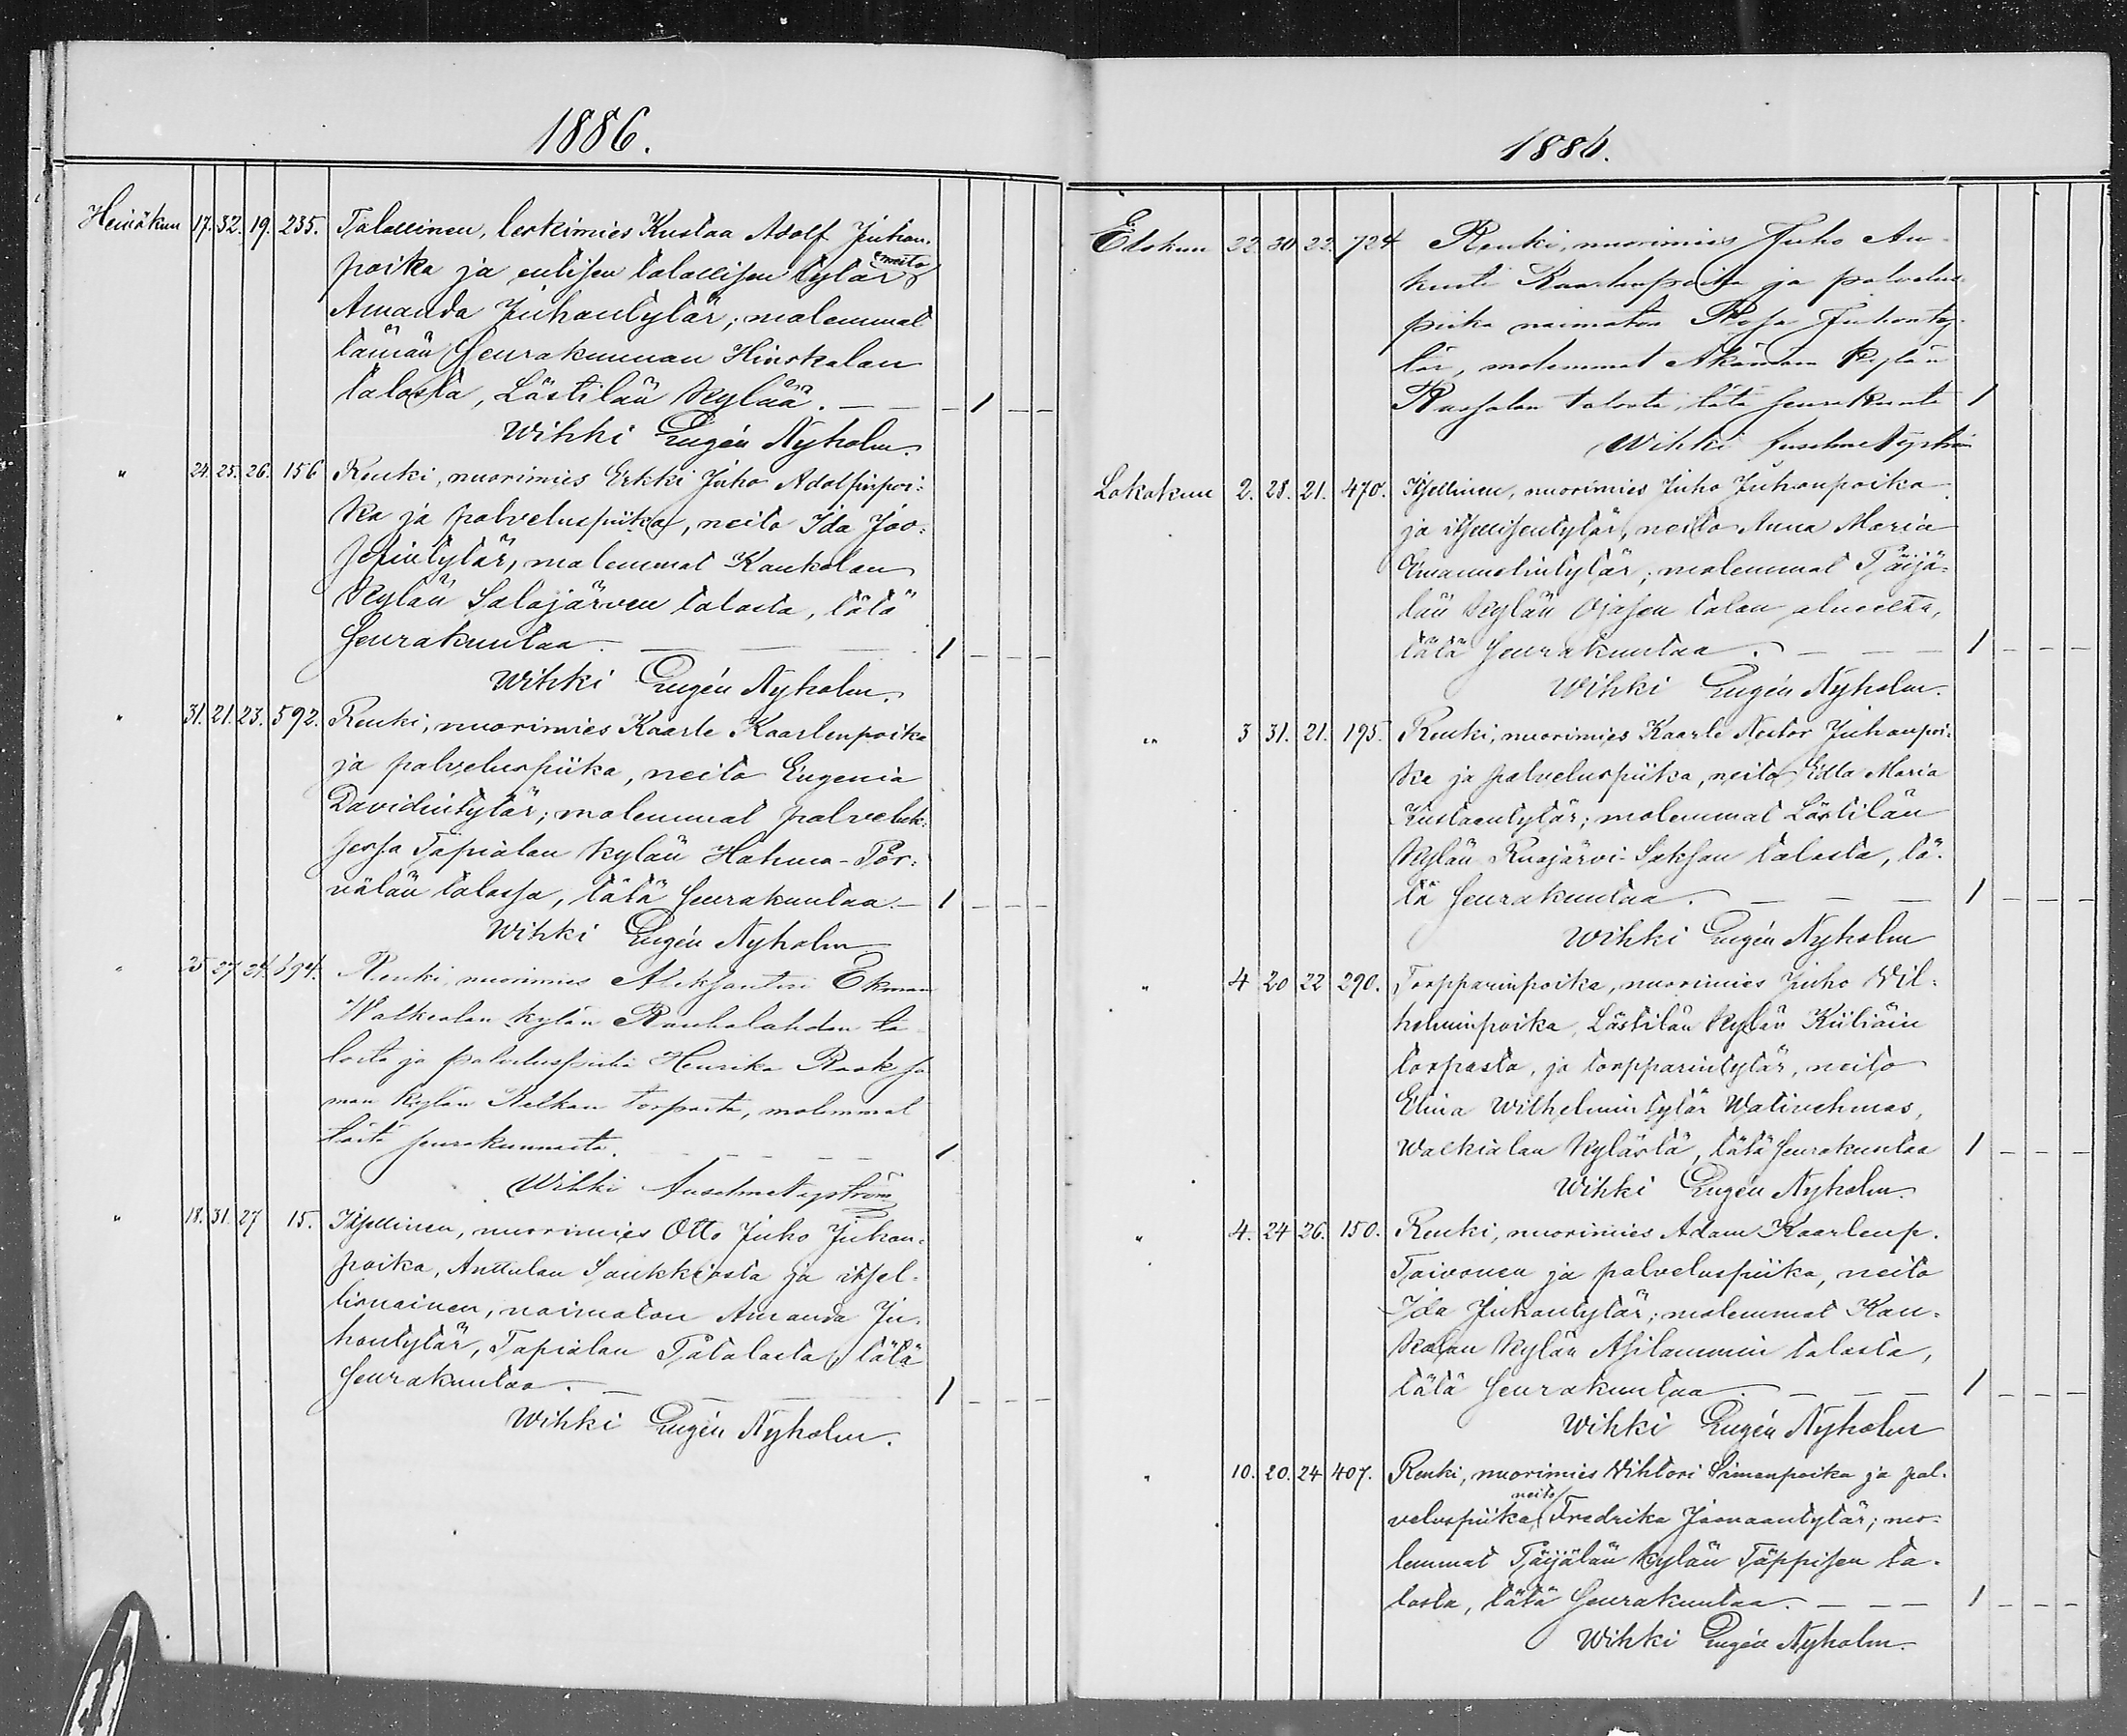 1886.
Heinäkun 17. 32. 19. 235. Talollinen, leskimies Kustaa Adolf Juhan-
poika ja entisen talollisen tytär neito
Amanda Juhantytär; molemmat
tämän seurakunnan Hinskalan
talosta, Lästilän kylää. — — 1 — —
Wihki Eugén Nyholm.
" 24. 25. 26. 156 Renki, nuorimies Erkki Juho Adolfinpoi-
ka ja palveluspiika, neito Ida Joo-
sefintytär, molemmat Kankolan
kylän Salajärven talosta, tätä
seurakuntaa. — — — 1 — — —
Wihki Eugén Nyholm.
" 31. 21. 23. 592. Renki, nuorimies Kaarle Kaarlenpoika
ja palveluspiika, neito Eugenia
Davidintytär; molemmat palveluk-
sessa Tapialan kylän Hahmo-Pör-
välän talossa, tätä seurakuntaa. — 1 — — —
Wihki Eugén Nyholm
" 25 27 24. 594. Renki, nuorimies Aleksanteri Ekman
Walkealan kylän Rauhalahden ta
losta ja palveluspiika Henrika Rask sa
man kylän Kelkan torpasta, molemmat
tästä seurakunnasta. — — — — 1
Wihki Anselm Nyström
" 18. 31. 27 15. Itsellinen, nuorimies Otto Juho Juhan-
poika, Anttulan Saukkiosta ja itsel-
lisnainen, naimaton Amanda Ju-
hantytär, Tapialan Pätalasta, tätä
seurakuntaa. — — — 1 — — —
Wihki Eugén Nyholm.
1886.
Elokun 22. 30 22. 724 Renki, nuorimies Juho Au-
kusti Kaarlenpoika ja palvelus-
piika naimaton Rosa Juhanty-
tär, molemmat kylän
talosta, tätä seurakunta 1
Wihki Anselm Nyström
Lokakuu 2. 28. 21. 470. Itsellinen, nuorimies Juho Juhanpoika
ja itsellisentytär, neito Anna Maria
Emanuelintytär, molemmat Päijä-
län kylän Ojasen talon alueelta,
tätä seurakuntaa. — — — 1 — — —
Wihki Eugén Nyholm.
" 3 31. 21. 195. Renki, nuorimies Kaarle Nestor Juhanpoi-
ka ja palveluspiika, neito Edla Maria
Kustaantytär; molemmat Lästilän
kylän Ruojärvi-Saksan talosta, tä-
tä seurakuntaa. — — — 1 — — —
Wihki Eugén Nyholm
" 4 20 22 290. Torpparinpoika, nuorimies Juho Wil-
helminpoika, Lästilän kylän Kiiliäin
torpasta, ja torpparintytär, neito
Elina Wilhelmintytär Wativehmas,
Walkialan kylästä, tätä seurakuntaa 1 — — —
Wihki Eugén Nyholm.
" 4. 24 26. 150. Renki, nuorimies Adam Kaarlenp.
Toivonen ja palveluspiika, neito
Ida Juhantytär; molemmat Kan-
kolan kylän Asilammin talosta,
tätä seurakuntaa. — — — 1 — — —
Wihki Eugén Nyholm
" 10. 20. 24 407. Renki, nuorimies Wihtori Simanpoika ja pal-
veluspiika, neito Fredrika Joonaantytär; mo-
lemmat Päijälän kylän Täppisen ta-
losta, tätä seurakuntaa. — — — 1 — — —
Wihki Eugén Nyholm.